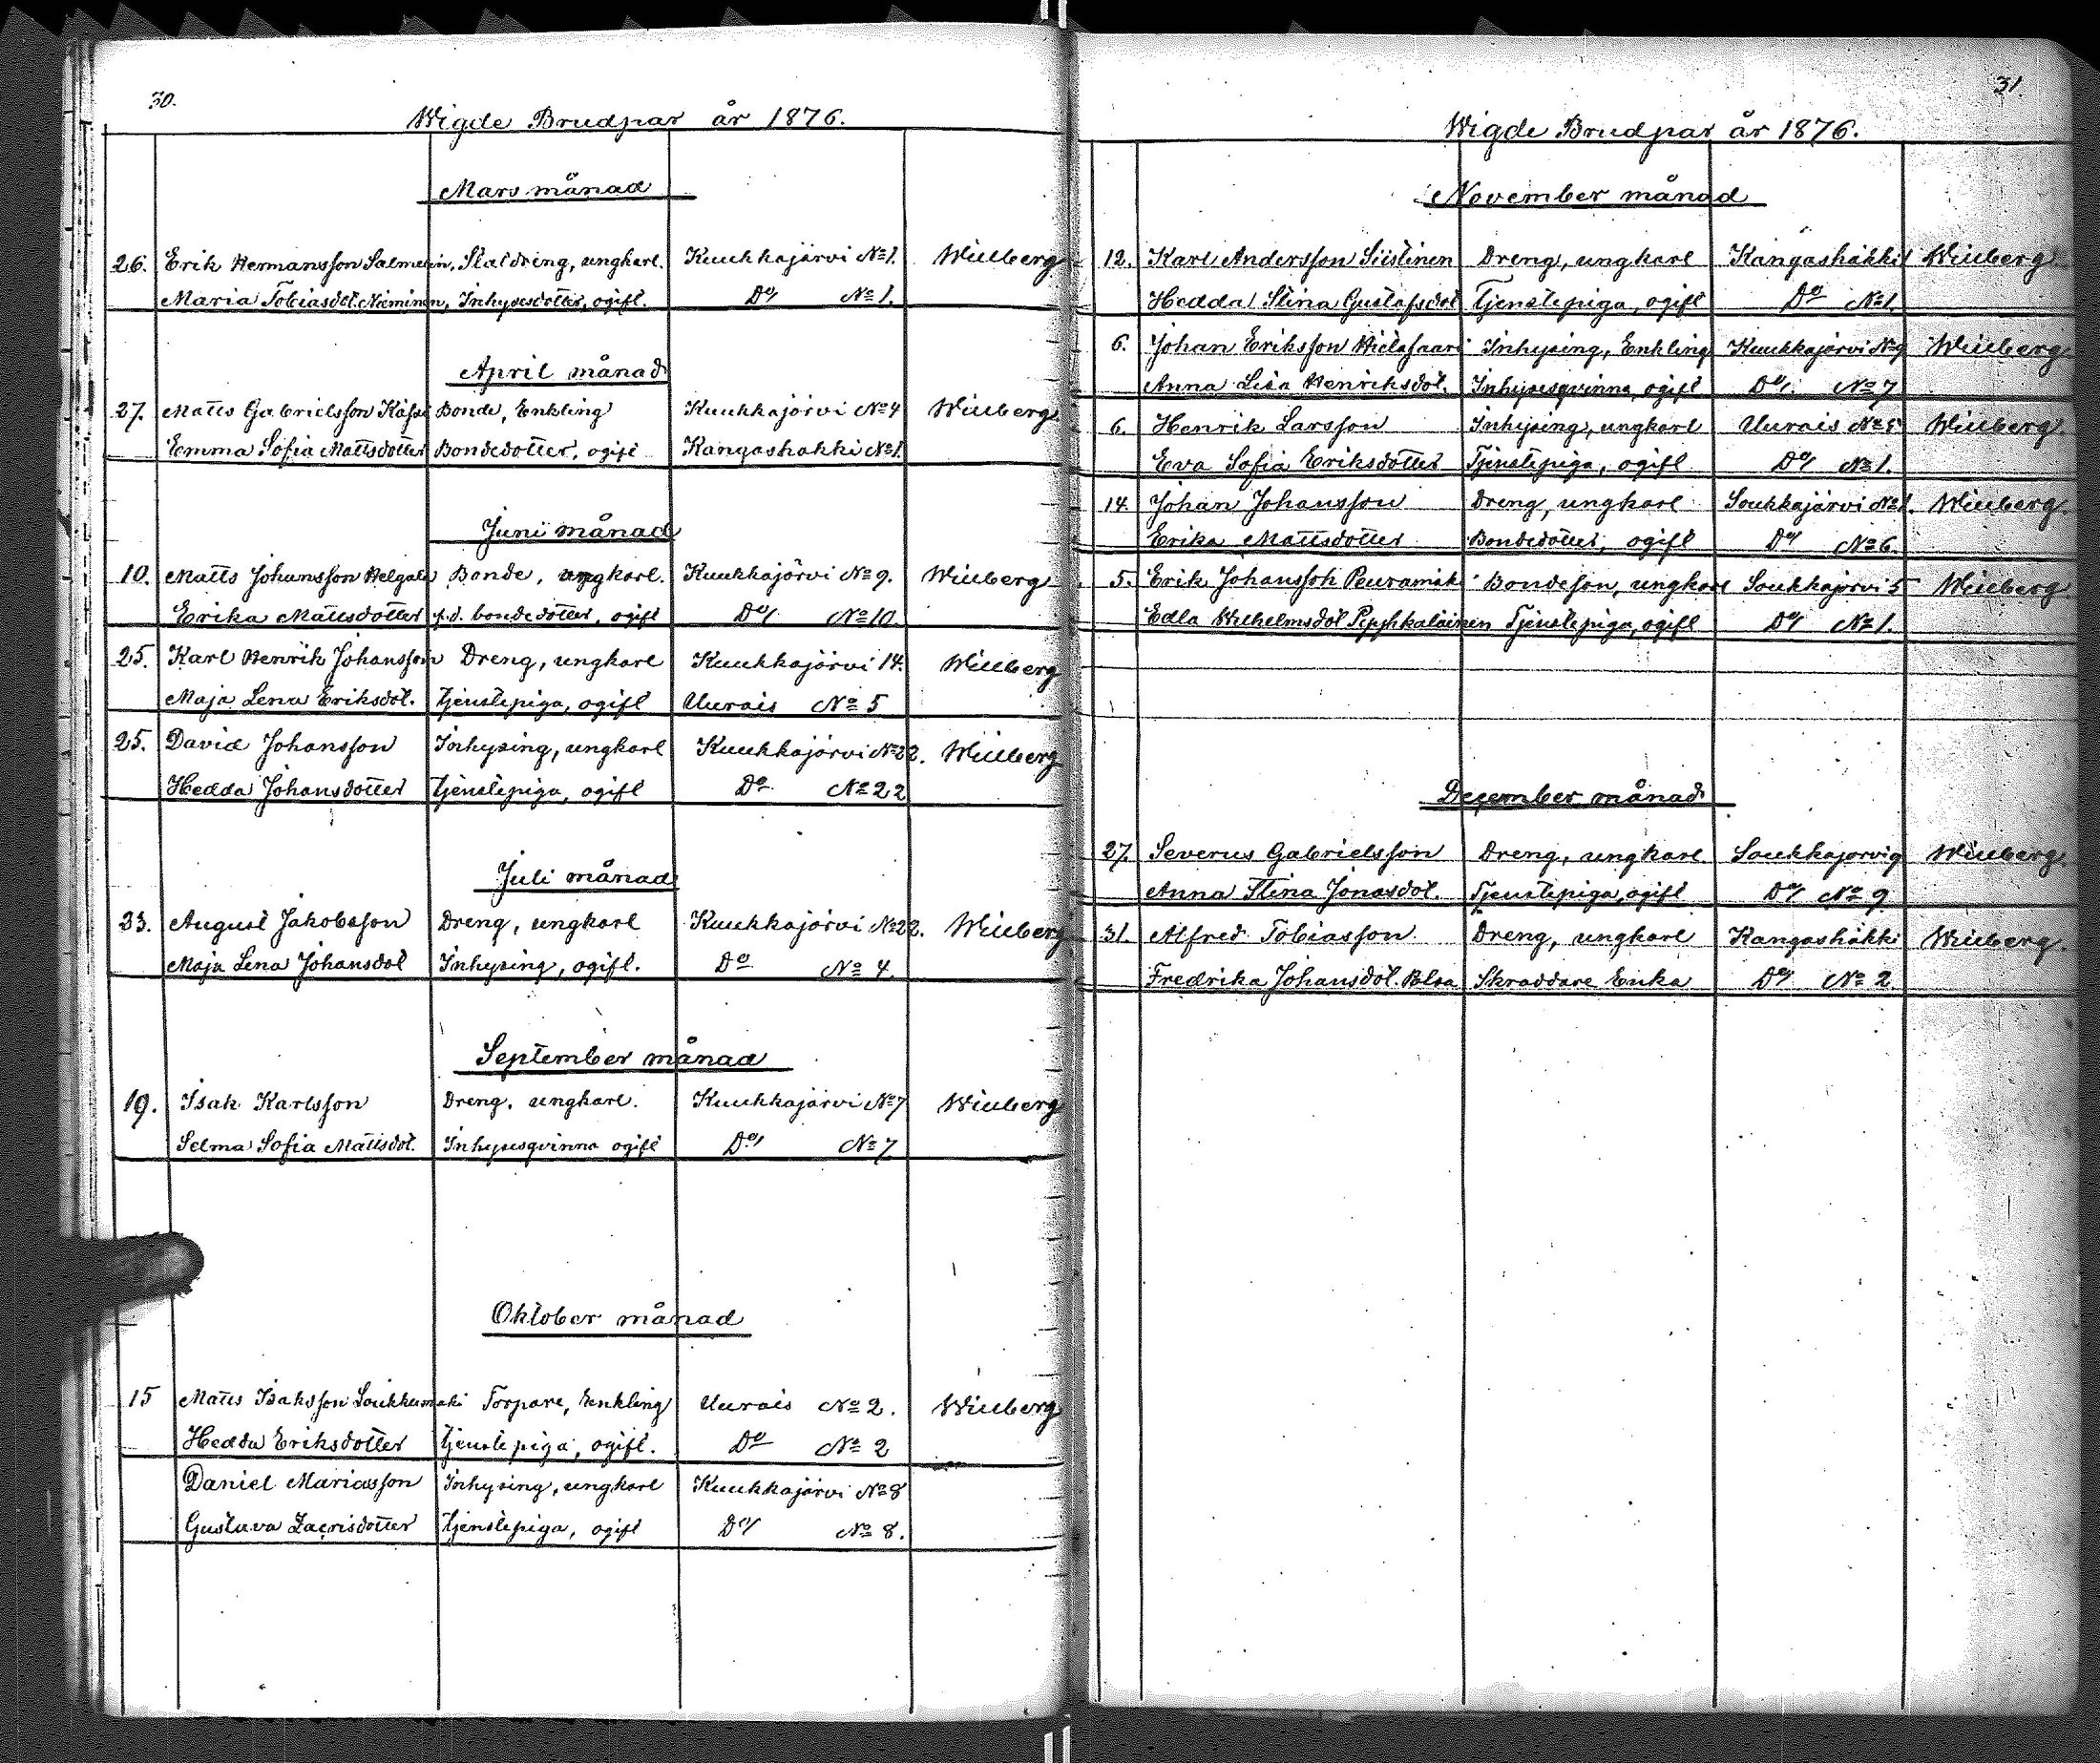 30.
Wigde Brudpar år 1876.
Mars månad
26. Erik Hermansson Salmelin, Staldreng, ungkarl. Kuukkajärvi No 1. Wiuberg
Maria Tobiasdot. Nieminen, Inhysesdotter, ogift. Do No 1.
April månad
27. Matts Gabrielsson Bonde, Enkling Kuukkajärvi No 4 Wiuberg
Emma Sofia Mattsdotter Bondedotter, ogift Kangashakki No 1.
Juni månad
10. Matts Johansson Bonde, ungkarl. Kuukkajärvi No 9. Wiuberg
Erika Mattsdotter f.d. bondedotter, ogift Do No 10
25. Karl Henrik Johansson Dreng, ungkarl Kuukkajärvi 14. Wiuberg
Maja Lena Eriksdot. tjenstepiga, ogift Uurais No 5
25. David Johansson Inhysing, ungkarl Kuukkajärvi No 22. Wiuberg
Hedda Johansdotter tjenstepiga, ogift Do No 22
Juli månad
23. August Jakobsson Dreng, ungkarl Kuukkajärvi No 22. Wiuberg
Maja Lena Johansdot Inhysing, ogift. Do No 4.
September månad
19. Isak Karlsson Dreng, ungkarl. Kuukkajärvi No 7 Wiuberg
Selma Sofia Mattsdot. Inhysesqvinna ogift Do No 7
Oktober månad
15 Matts Isaksson Loukkumaki Torpare, Enkling Uurais No 2. Wiuberg
Hedda Eriksdotter tjenstepiga, ogift. Do No 2
Daniel Mariasson Inhysing, ungkarl Kuukkajärvi No 8
Gustava Zacrisdotter tjenstepiga, ogift Do No 8.
31.
Wigde Brudpar år 1876.
November månad
12. Karl Andersson Siistinen Dreng, ungkarl Kangashäkki 1 Wiuberg
Hedda Stina Gustafsdot Tjenstepiga, ogift Do No 1.
6. Johan Eriksson Hietasaari Inhysing, Enkling Kuukkajärvi No 9 Wiuberg
Anna Lisa Henriksdot. Inhysesqvinna, ogift Do No 7
6. Henrik Larsson Inhysing, ungkarl Uurais No 5 Wiuberg
Eva Sofia Eriksdotter Tjenstepiga, ogift Do No 1.
14 Johan Johansson Dreng, ungkarl Soukkajärvi No 1. Wiuberg
Erika Mattsdotter Bondedotter, ogift Do No 6.
5. Erik Johansson Peuramäki Bondeson, ungkarl Soukkajärvi 5 Wiuberg
Edla Wilhelmsdot Tjenstepiga, ogift Do No 1.
December månad
27. Severus Gabrielsson Dreng, ungkarl Soukkajärvi 9 Wiuberg
Anna Stina Jonasdot. Tjenstepiga, ogift Do No 9
31. Alfred Tobiasson Dreng, ungkarl Kangashäkki Wiuberg
Fredrika Johansdot. Skraddare Enka Do No 2.